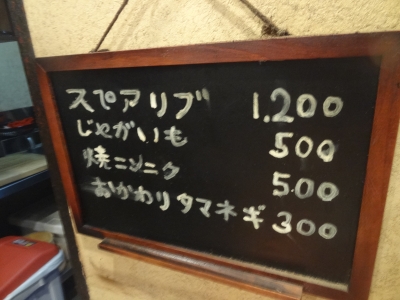 スペアリブ 1,200
じゃがいも 500
焼ニンニク 500
おかわりタマネギ 300